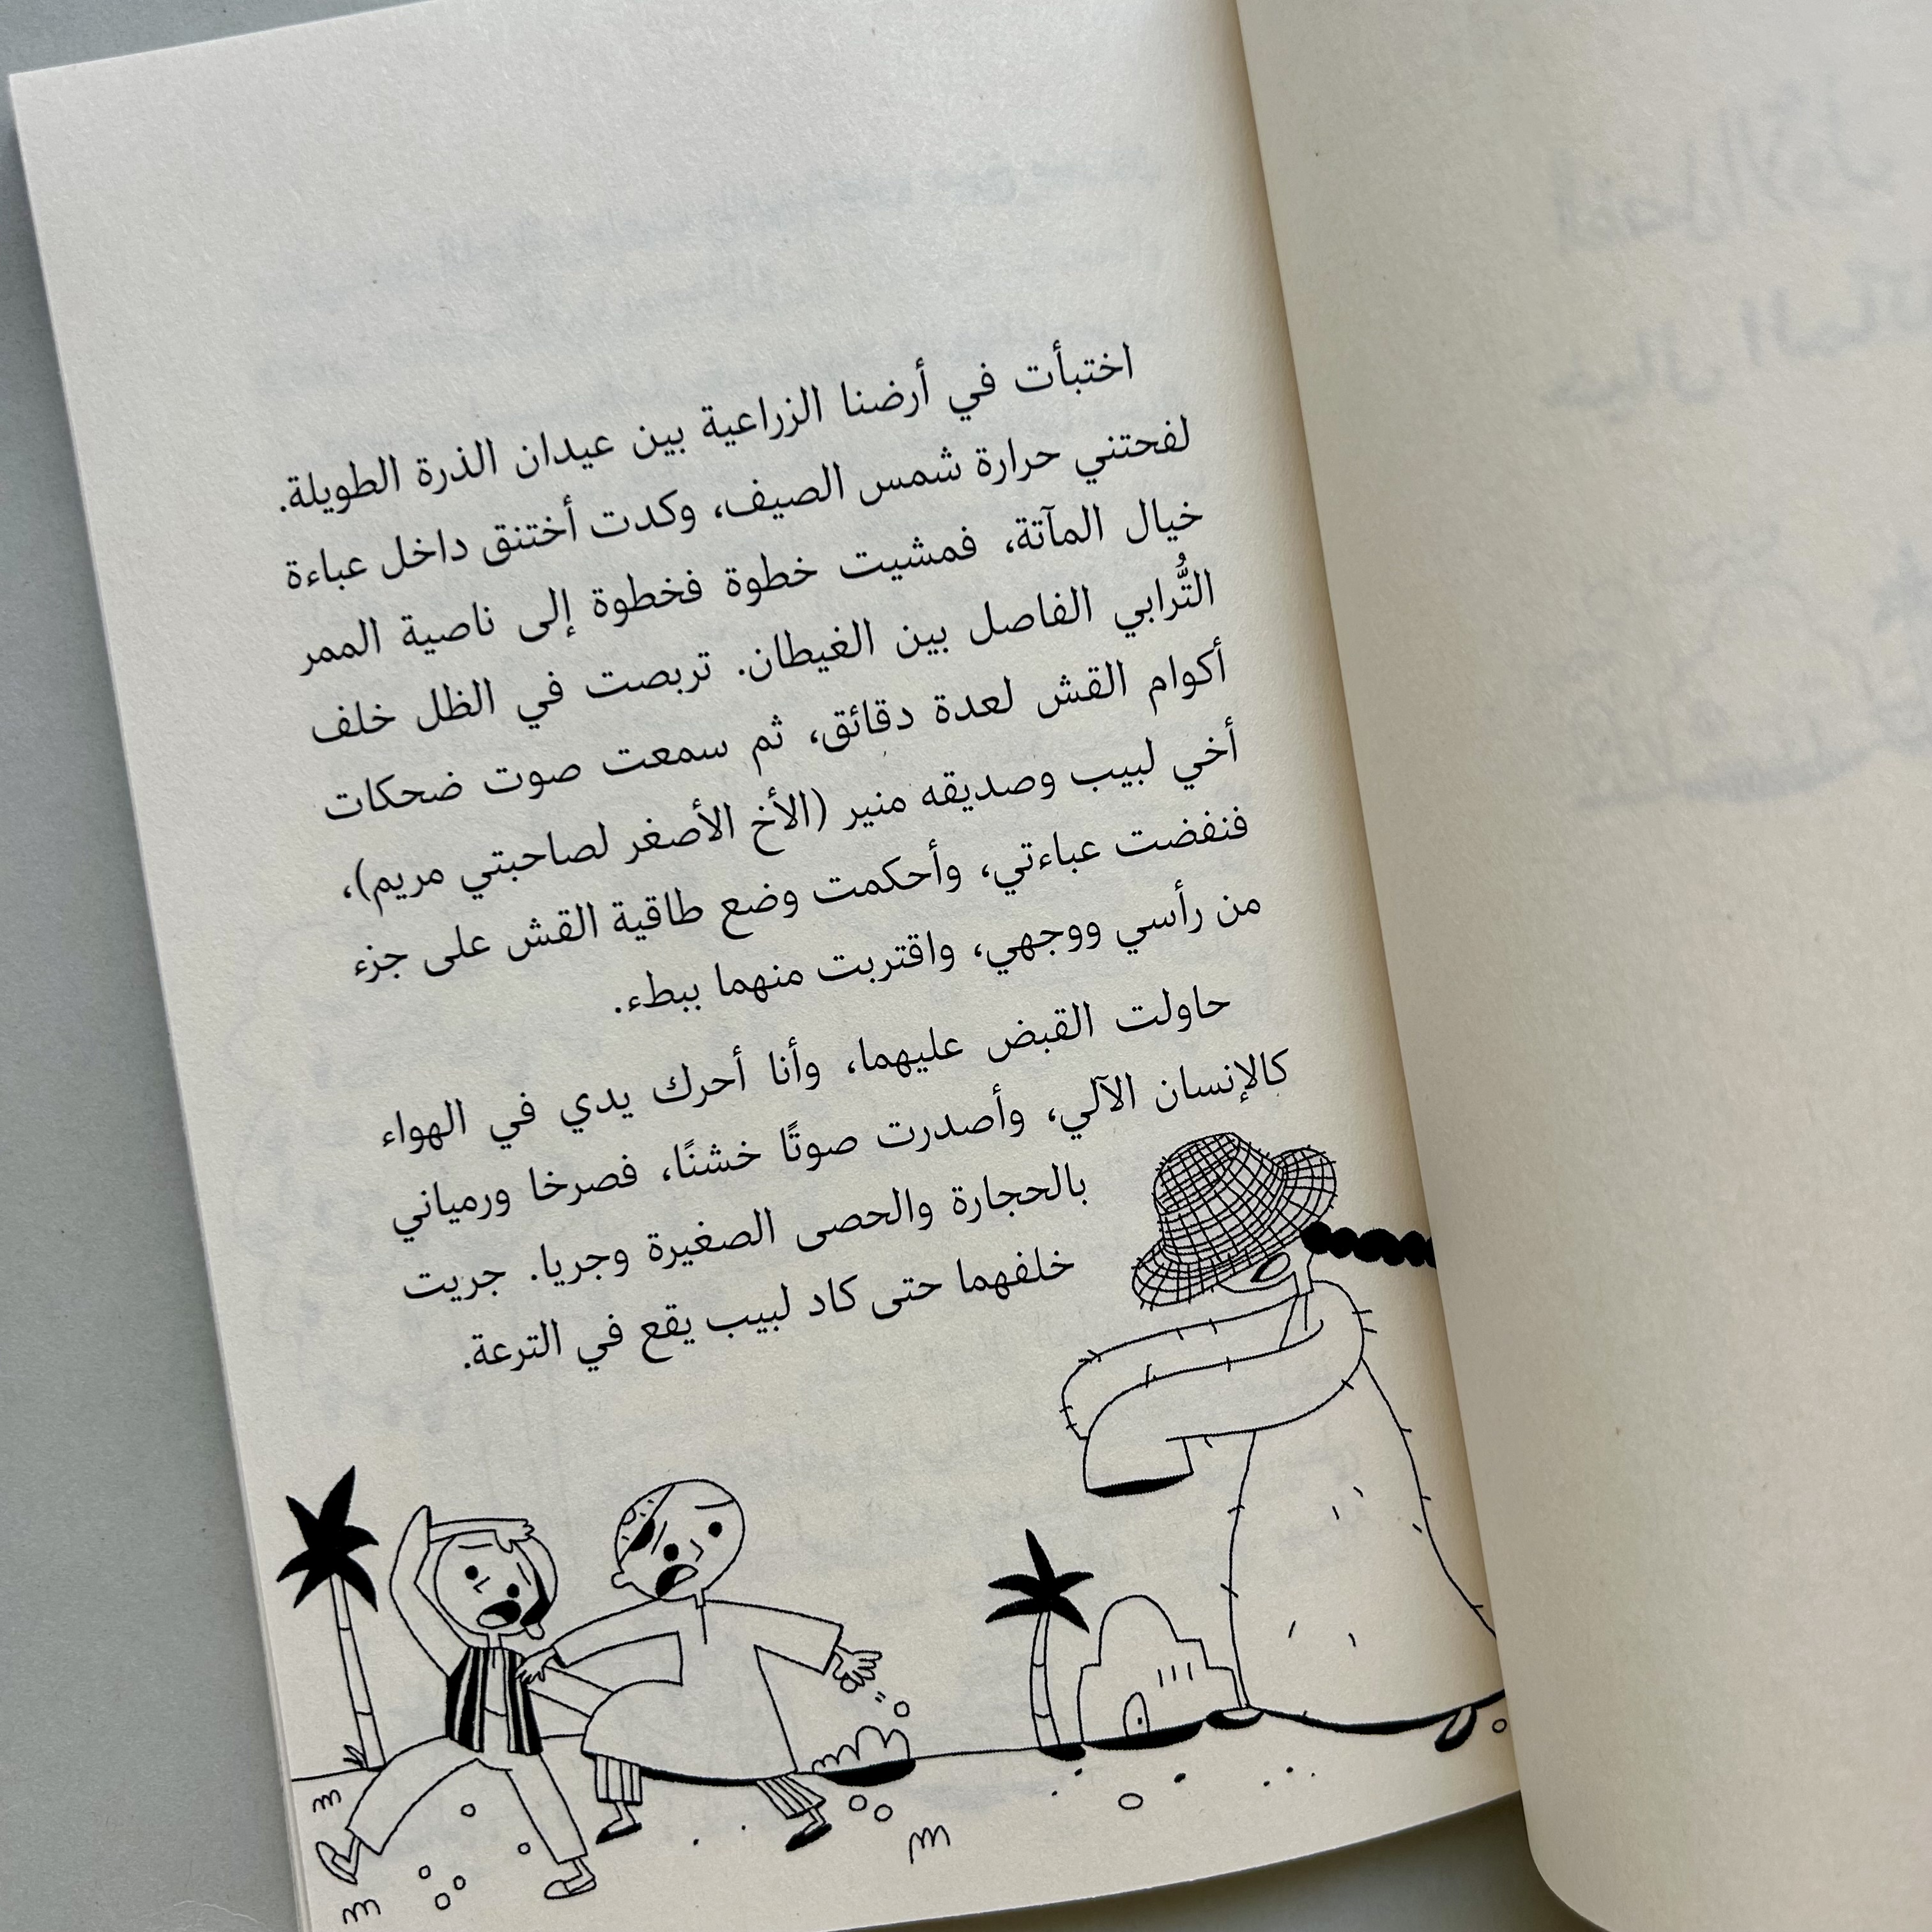 اختبأت في أرضنا الزراعية بين عيدان الذرة الطويلة.
لفحتني حرارة شمس الصيف، وكدت أختنق داخل عباءة
خيال المآتة، فمشيت خطوة فخطوة إلى ناصية الممر
التُّرابي الفاصل بين الغيطان. تربصت في الظل خلف
أكوام القش لعدة دقائق، ثم سمعت صوت ضحكات
أخي لبيب وصديقه منير (الأخ الأصغر لصاحبتي مريم)،
فنفضت عباءتي، وأحكمت وضع طاقية القش على جزء
من رأسي ووجهي، واقتربت منهما ببطء.
حاولت القبض عليهما، وأنا أحرك يدي في الهواء
كالإنسان الآلي، وأصدرت صوتًا خشنًا، فصرخا ورمياني
بالحجارة والحصى الصغيرة وجريا. جريت
خلفهما حتى كاد لبيب يقع في الترعة.